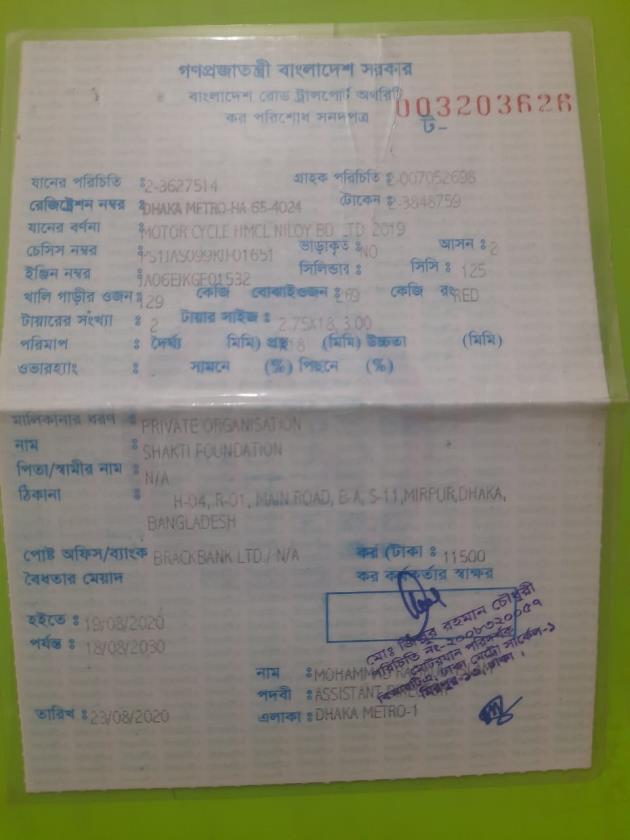 গণপ্রজাতন্ত্রী বাংলাদেশ সরকার
বাংলাদেশ রোড ট্রান্সপোর্ট অথরিটি
003203626
কর পরিশোধ সনদপত্র ট-
যানের পরিচিতি : 2-3627514 গ্রাহক পরিচিতি : 2-007052698
রেজিষ্ট্রেশন নম্বর : DHAKA METRO-HA-65-4024 টোকেন : 2-3848759
যানের বর্ণনা : MOTOR CYCLE HMCL NILOY BD. LTD, 2019
চেসিস নম্বর : ভাড়াকৃত : NO আসন : 2
ইঞ্জিন নম্বর : সিলিন্ডার : সিসি : 125
খালি গাড়ীর ওজন : 129 কেজি বোঝাইওজন : কেজি রং RED
টায়ারের সংখ্যা : 2 টায়ার সাইজ : 2.75X18, 3.00
পরিমাপ : দৈর্ঘ্য (মিমি) প্রস্থ 18 (মিমি) উচ্চতা (মিমি)
ওভারহ্যাং : সামনে (%) পিছনে (%)
মালিকানার ধরণ : PRIVATE ORGANISATION
নাম : SHAKTI FOUNDATION
পিতা/স্বামীর নাম : N/A
ঠিকানা : H-04, R-01, MAIN ROAD, B-A, S-11,MIRPUR,DHAKA,
BANGLADESH
পোষ্ট অফিস/ব্যাংক BRACKBANK LTD./ N/A কর (টাকা : 11500
বৈধতার মেয়াদ কর কর্মকর্তার স্বাক্ষর
হইতে : 19/08/2020
পর্যন্ত : 18/08/2030
মোঃ জিল্লুর রহমান চৌধুরী
পরিচিতি নং-২০০৮৩২০০৫৭
মোটরযান পরিদর্শক
বিআরটিএ, ঢাকা মেট্রো সার্কেল-১
মিরপুর-১৩, ঢাকা।
নাম : MOHAMMAD
পদবী : ASSISTANT
তারিখ : 23/08/2020 এলাকা : DHAKA METRO-1